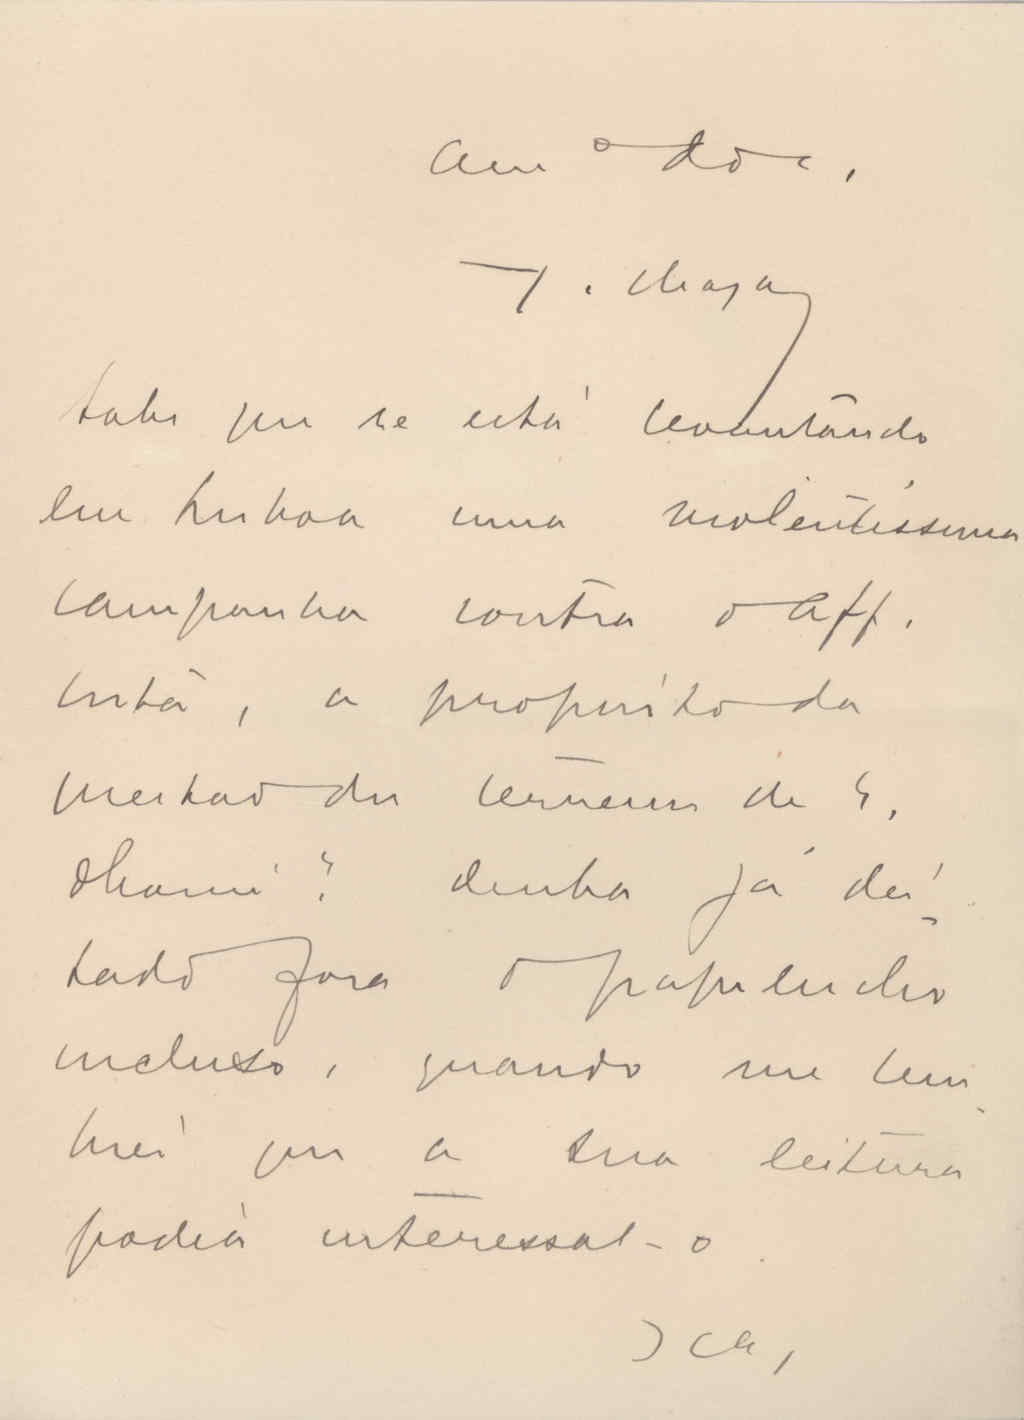 Am º do c,
T. Chagas
sabe que se está levantando
em Lisboa uma violentissima
campanha contra o Aff.
Costa, a proposito da
questão dos terrenos de S.
Thomé? Tenha já dei-
tado fora o papelucho
incluso, quando me lem-
brei que a sua leitura
podia interessal-o.